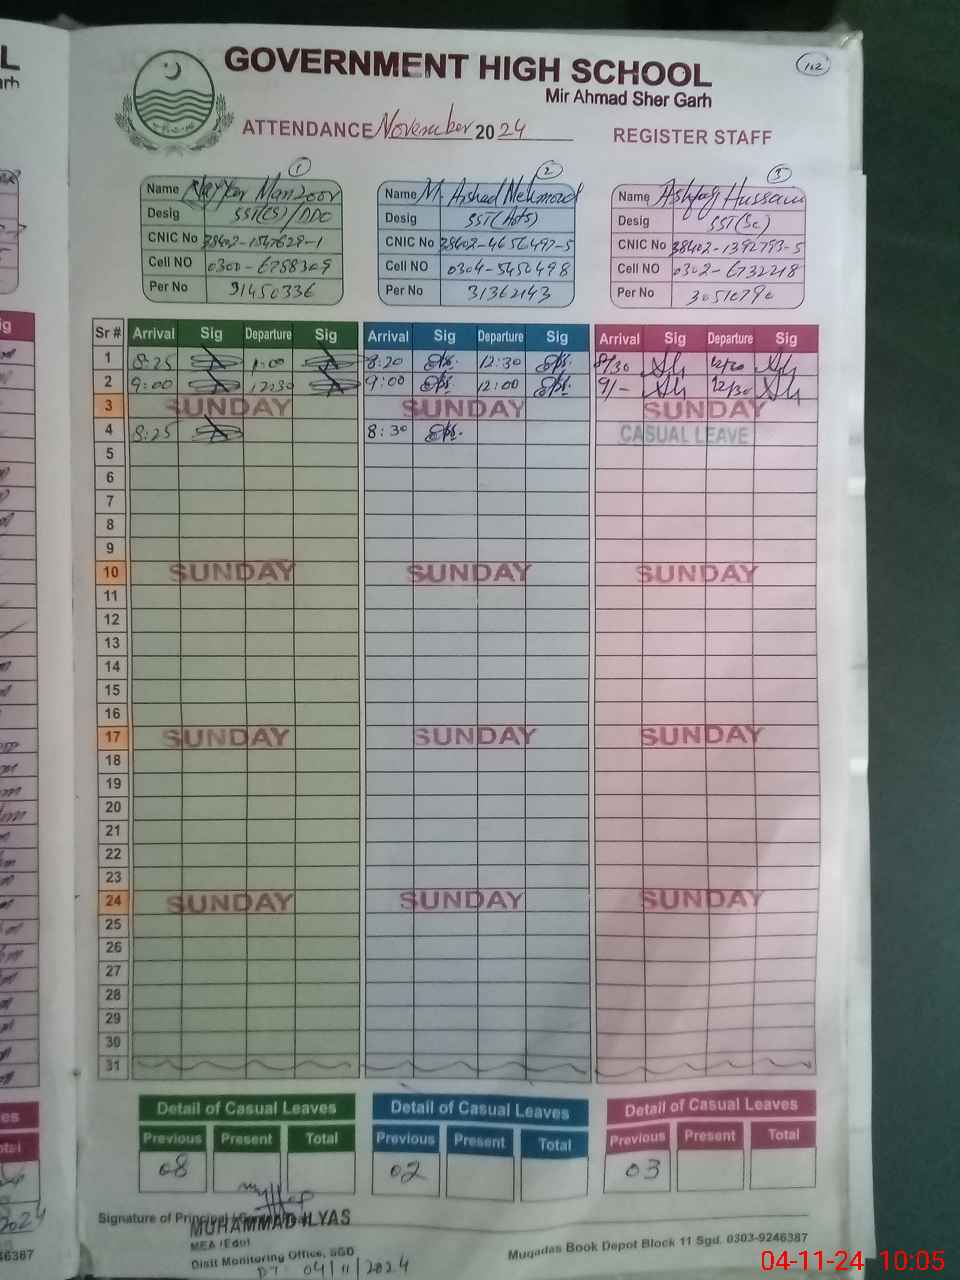 GOVERNMENT HIGH SCHOOL
112
Mir Ahmad Sher Garh
ATTENDANCE November 2024 REGISTER STAFF
1 2 3
Name Nayyer Manzoor Name M. Arshad Mehmood Name Ashfaq Hussain
Desig SST(CS)/DDO Desig SST(Arts) Desig SST(Sc)
CNIC No 38402-1547629-1 CNIC No 38402-4656497-5 CNIC No 38402-1392793-5
Cell NO 0300-6758309 Cell NO 0304-5450498 Cell NO 0302-6732218
Per No 31450336 Per No 31362143 Per No 30510790
Sr # Arrival Sig Departure Sig Arrival Sig Departure Sig Arrival Sig Departure Sig
1 8:25 1:00 8:20 12:30 8/30
2 9:00 12:30 9:00 12:00 9/- 12/30
3 SUNDAY SUNDAY SUNDAY
4 8:25 8:30 CASUAL LEAVE
5
6
7
8
9
10 SUNDAY SUNDAY SUNDAY
11
12
13
14
15
16
17 SUNDAY SUNDAY SUNDAY
18
19
20
21
22
23
24 SUNDAY SUNDAY SUNDAY
25
26
27
28
29
30
31
Detail of Casual Leaves Detail of Casual Leaves Detail of Casual Leaves
Previous Present Total Previous Present Total Previous Present Total
08 02 03
Signature of Principal
MUHAMMAD ILYAS
MEA (Edu)
Distt Monitoring Office, SGD
DT: 04/11/2024
Muqadas Book Depot Block 11 Sgd. 0303-9246387
04-11-24 10:05